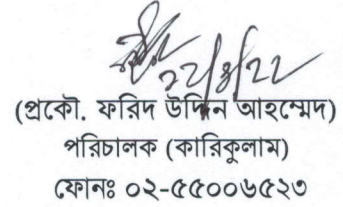 ২২/৪/২২
(প্রকৌ. ফরিদ উদ্দিন আহম্মেদ)
পরিচালক (কারিকুলাম)
ফোনঃ ০২-৫৫০০৬৫২৩